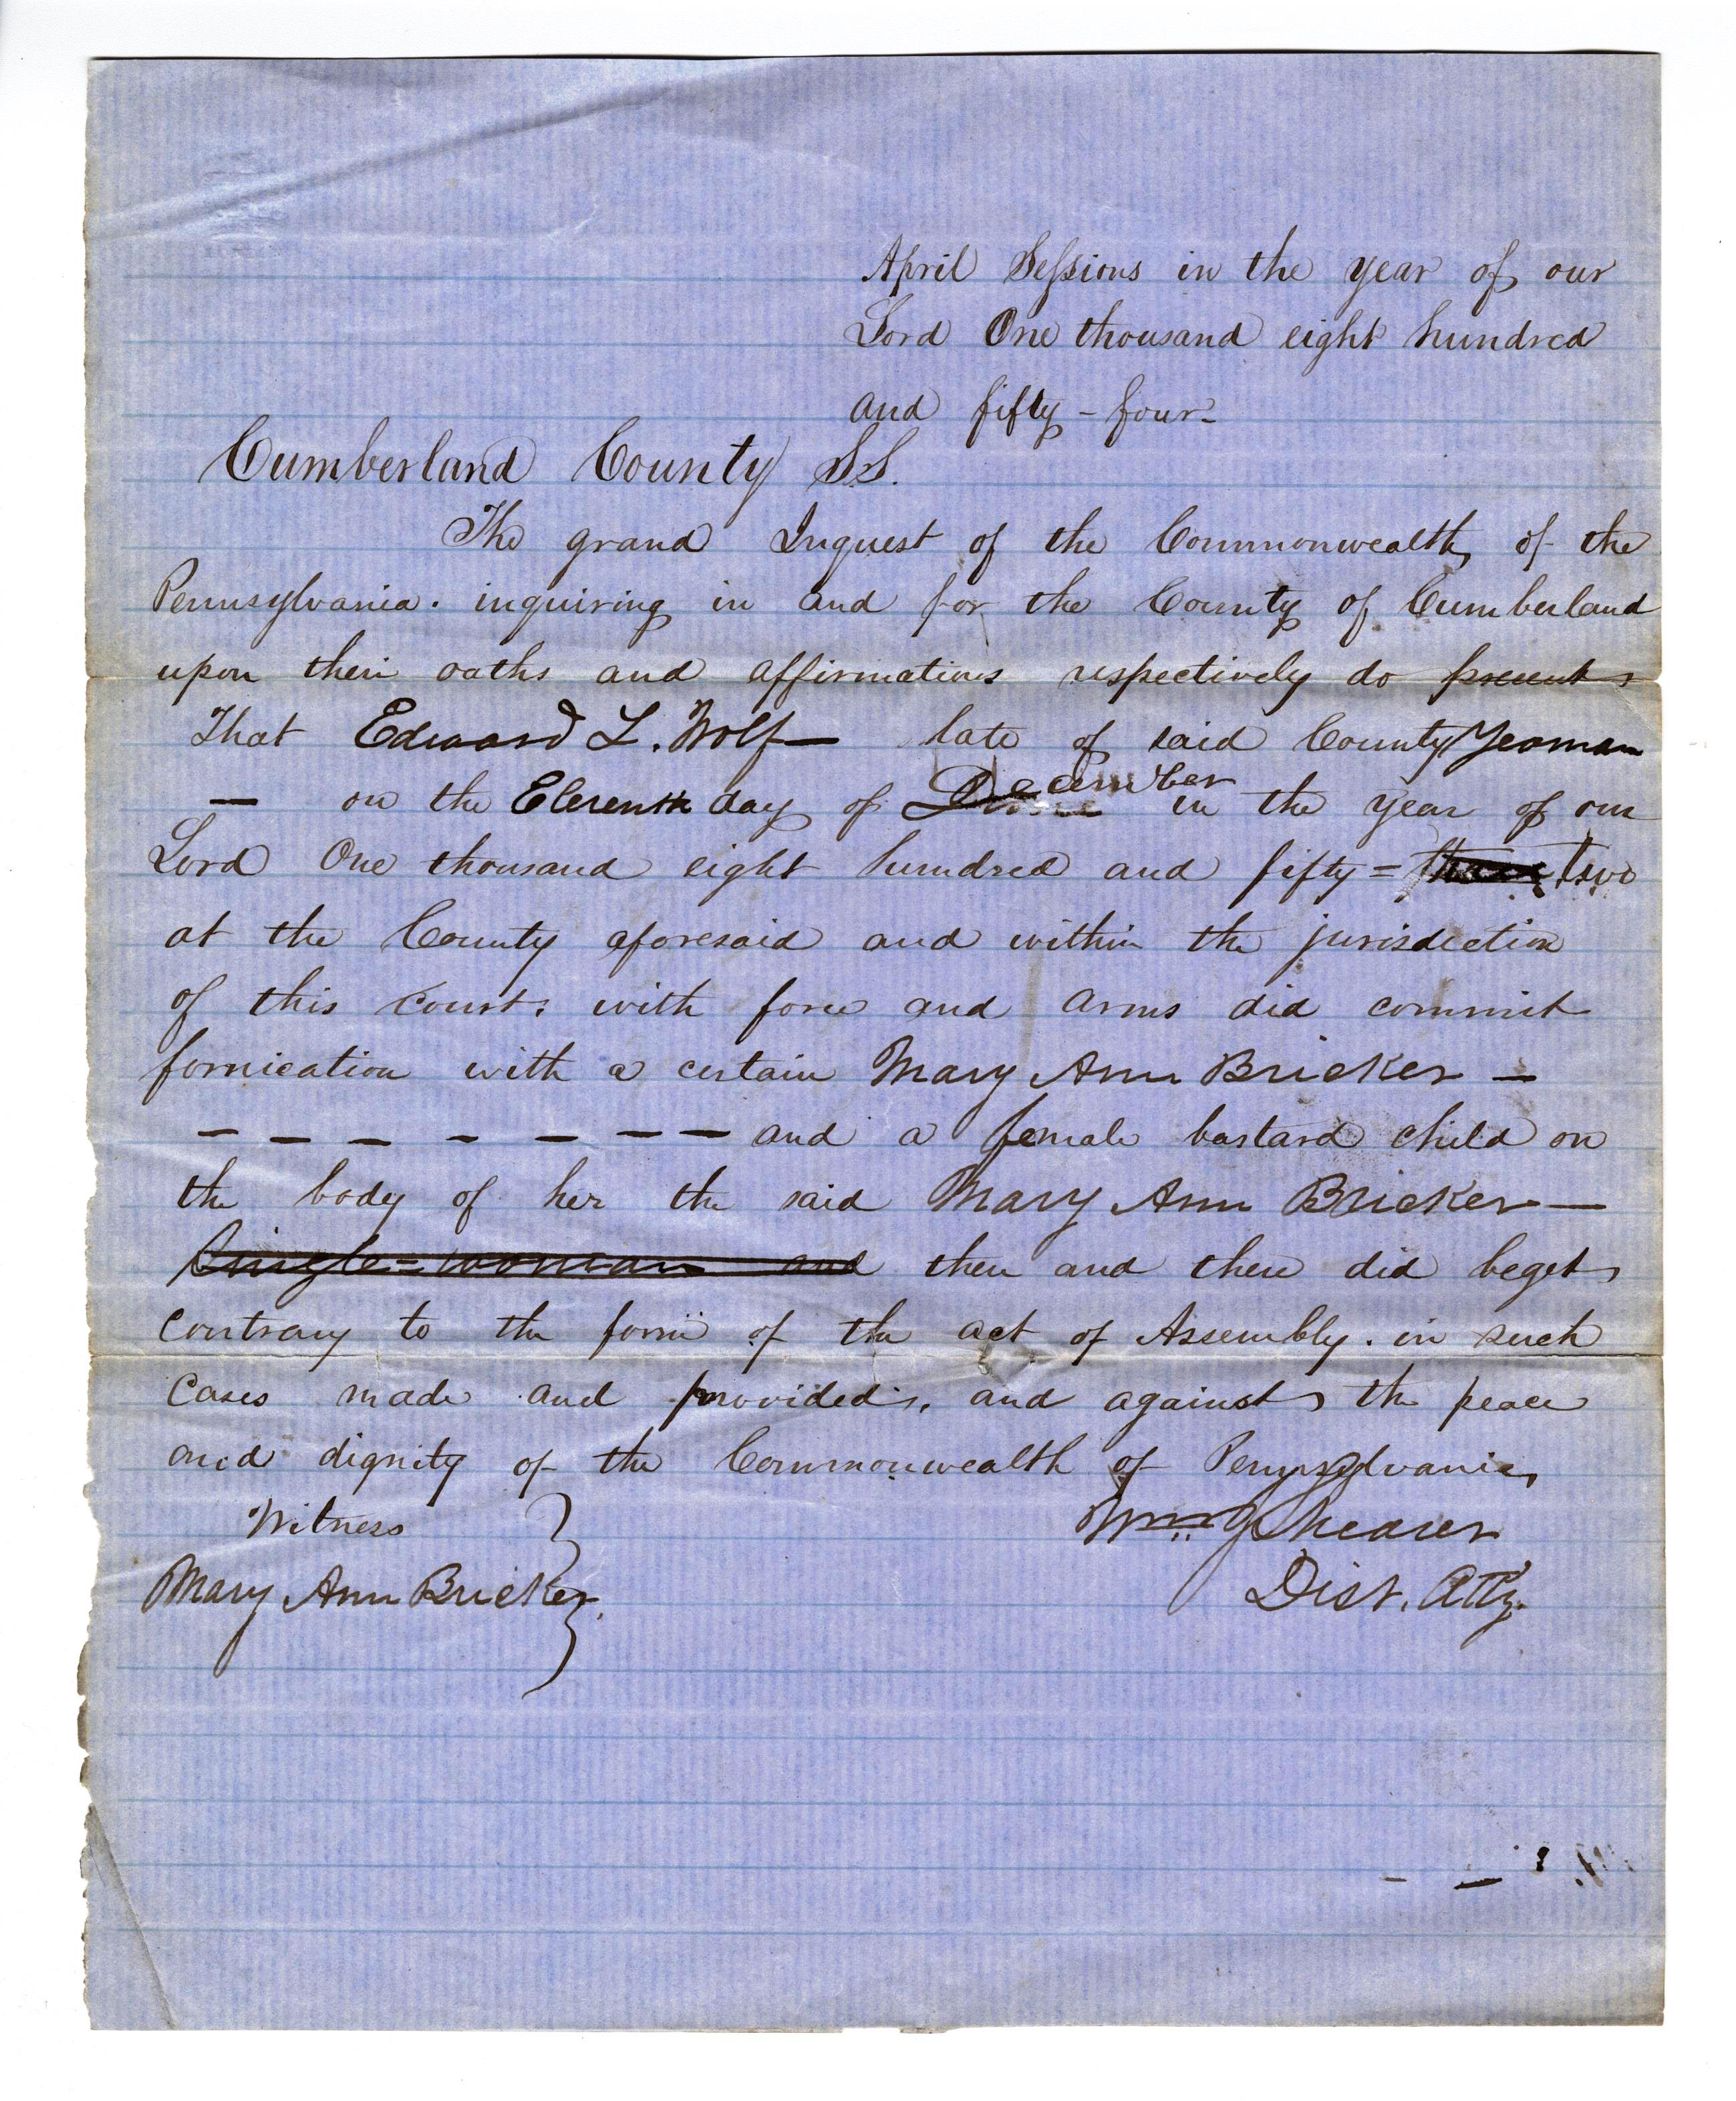 April Sessions in the year of our
Lord One thousand eight hundred
and fifty-four-
Cumberland County SS.
The grand Inquest of the Commonwealth of the
Pennsylvania. inquiring in and for the County of Cumberland
upon their oaths and affirmations respectively do present
That Edward L. Wolf — late of said County Yeoman
— on the Eleventh day of December in the year of our
Lord One thousand eight hundred and fifty= three two
at the County aforesaid and within the jurisdiction
of this court, with force and arms did commit
fornication with a certain Mary Ann Bricker —
— — — — — — — — and a female bastard child on
the body of her the said Mary Ann Bricker —
Single=woman and then and there did beget
contrary to the form of the act of Assembly. in such
cases made and provided, and against the peace
and dignity of the Commonwealth of Pennsylvania,
Witness } Wm J Shearer
Mary Ann Bricker. Dist. Atty.